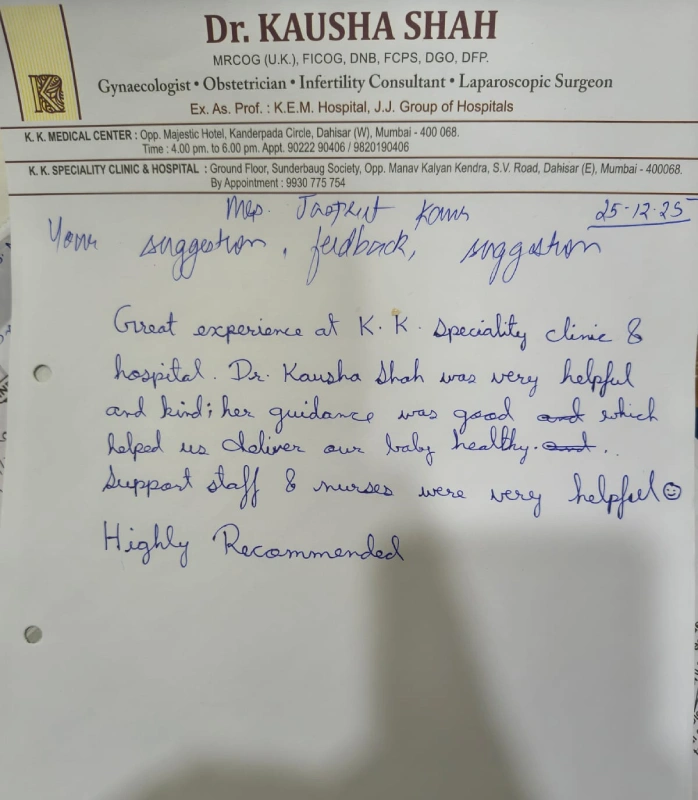 Dr. KAUSHA SHAH
MRCOG (U.K.), FICOG, DNB, FCPS, DGO, DFP.
Gynaecologist • Obstetrician • Infertility Consultant • Laparoscopic Surgeon
Ex. As. Prof. : K.E.M. Hospital, J.J. Group of Hospitals
K. K. MEDICAL CENTER : Opp. Majestic Hotel, Kanderpada Circle, Dahisar (W), Mumbai - 400 068.
Time : 4.00 pm. to 6.00 pm. Appt. 90222 90406 / 9820190406
K. K. SPECIALITY CLINIC & HOSPITAL : Ground Floor, Sunderbaug Society, Opp. Manav Kalyan Kendra, S.V. Road, Dahisar (E), Mumbai - 400068.
By Appointment : 9930 775 754
Mrs. Kaur 25-12-25
Your suggestion, feedback, suggestion
Great experience at K. K. Speciality clinic &
hospital. Dr. Kausha Shah was very helpful
and kind; her guidance was good and which
helped us deliver our baby healthy. and..
Support staff & nurses were very helpful☺
Highly Recommended